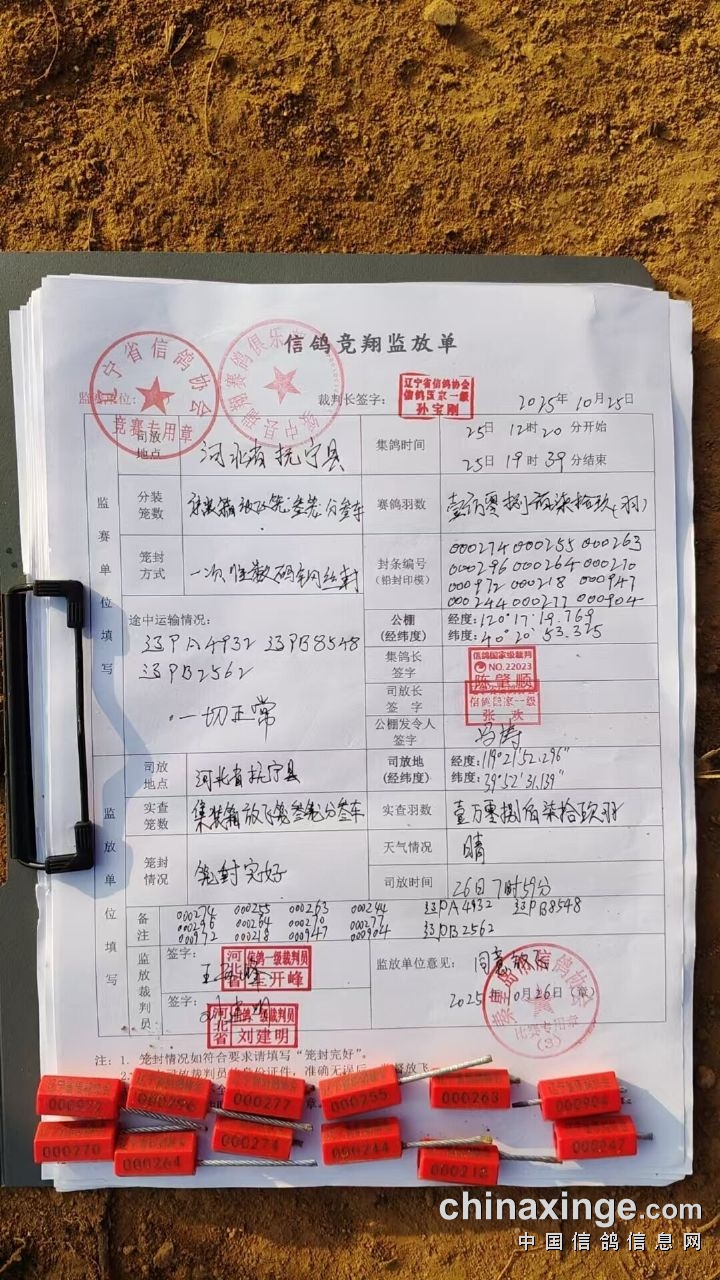 信鸽竞翔监放单
辽宁省信鸽协会
竞赛专用章
裁判长签字：
辽宁省信鸽协会
信鸽国家一级
孙宝刚
2025年10月25日
监赛单位填写
司放地点
河北省抚宁县
集鸽时间
25日12时20分开始
25日19时39分结束
分装笼数
集装箱放飞笼叁笼分叁车
赛鸽羽数
笼封方式
一次性数码钢丝封
封条编号
(铅封印模)
000274 000255 000263
000296 000264 000270
000972 000218 000947
000244 000277 000904
途中运输情况：
辽PA4932 辽PB8548
辽PB2562
一切正常
公棚
(经纬度)
经度：120°17'19.769
纬度：40°20'53.325
集鸽长签字
信鸽国家级裁判
NO.22023
陈肇顺
司放长签字
信鸽国家一级
张欢
公棚发令人签字
冯涛
监放单位填写
司放地点
河北省抚宁县
司放地
(经纬度)
经度：119°21'52.296"
纬度：39°52'31.139"
实查笼数
集装箱放飞笼叁笼分叁车
实查羽数
壹万零捌佰柒拾玖羽
笼封情况
笼封完好
天气情况
晴
司放时间
26日7时59分
备注
000274 000255 000263 000244 辽PA4932 辽PB8548
000296 000264 000270 000277 辽PB2562
000972 000218 000947 000904
监放裁判员
签字：
信鸽一级裁判员
河北省
王开峰
签字：
信鸽一级裁判员
河北省
刘建明
监放单位意见：
同意放飞
2025年10月26日（章）
秦皇岛市信鸽协会
比赛专用章
(3)
注：1. 笼封情况如符合要求请填写“笼封完好”。
000972 000296 000277 000255 000263 000904
000270 000264 000274 000244 000218 000947
chinaxinge.com
中国信鸽信息网